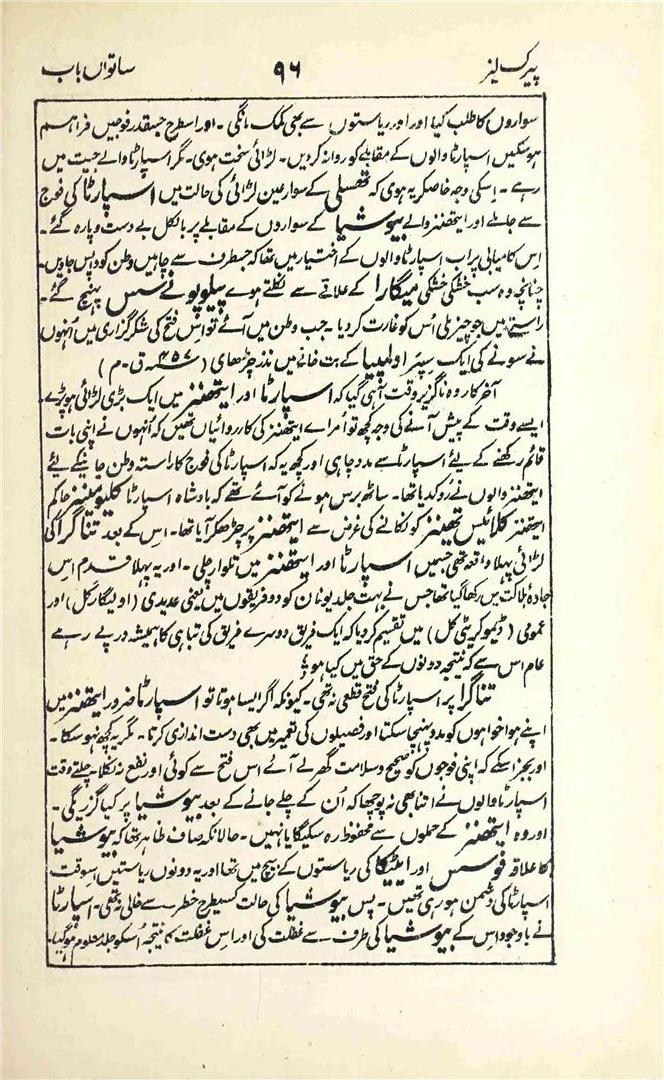 پیرک لیز ۹۶ ساتواں باب
سواروں کا طلب کیا اور اور ریاستوں سے بھی کمک مانگی ۔ اور اسطرح جسقدر فوجیں فراہم
ہوسکیں اسپارٹا والوں کے مقابلے کو روانہ کردیں ۔ لڑائی سخت ہوی ۔ مگر اسپارٹا والے جیت میں
رہے ۔ اسکی وجہ خاصکر یہ ہوی کہ تھسلی کے سوار عین لڑائی کی حالت میں اسپارٹا کی فوج
سے جاملے اور ایتھنز والے بیوشیا کے سواروں کے مقابلے پر بالکل بے دست و پا رہ گئے ۔
اس کامیابی پر اب اسپارٹا والوں کے اختیار میں تھا کہ جسطرف سے چاہیں وطن کو واپس جاویں ۔
چنانچہ وہ سب خشکی خشکی میگارا کے علاقے سے نکلتے ہوے پیلوپونے سس پہنچ گئے ۔
راستے میں جو چیز ملی اُس کو غارت کردیا ۔ جب وطن میں آئے تو اس فتح کی شکر گزاری میں اُنہوں
نے سونے کی ایک سپر اولمپیا کے بت خانے میں نذر چڑھای ( ۴۵۷ ق ۔ م )
آخر کار وہ ناگزیر وقت آہی گیا کہ اسپارٹا اور ایتھنز میں ایک بڑی لڑائی ہو پڑے ۔
ایسے وقت کے پیش آنے کی وجہ کچھ تو اُمراے ایتھنز کی کارروائیاں تھیں کہ اُنہوں نے اپنی بات
قائم رکھنے کے لیئے اسپارٹا سے مدد چاہی اور کچھ یہ کہ اسپارٹا کی فوج کا راستہ وطن جانیکے لیئے
ایتھنز والوں نے روکدیا تھا ۔ ساٹھ برس ہونے کو آئے تھے کہ بادشاہ اسپارٹا کلیومینیز حاکم
ایتھنز کلائیس تھینز کو نکالنے کی غرض سے ایتھنز پر چڑھکر آیا تھا ۔ اس کے بعد تناگرا کی
لڑائی پہلا واقعہ تھی جسمیں اسپارٹا اور ایتھنز میں تلوار چلی ۔ اور یہ پہلا قدم اس
جادۂ ہلاکت میں رکھا گیا تھا جس نے بہت جلد یونان کو دو فریقوں میں یعنی عدیدی ( اولیگارکل ) اور
عمومی ( ڈیموکریٹی کل ) میں تقسیم کردیا کہ ایک فریق دوسرے فریق کی تباہی کا ہمیشہ درپے رہے
عام اس سے کہ نتیجہ دونوں کے حق میں کیا ہو ؟
تناگرا پر اسپارٹا کی فتح قطعی نہ تھی ۔ کیونکہ اگر ایسا ہوتا تو اسپارٹا ضرور ایتھنز میں
اپنے ہواخواہوں کو مدد پہنچا سکتا اور فصیلوں کی تعمیر میں بھی دست اندازی کرتا ۔ مگر یہ کچھ نہوسکا ۔
اور بجز اسکے کہ اپنی فوجوں کو صحیح و سلامت گھر لے آئے اس فتح سے کوئی اور نفع نہ نکلا ۔ چلتے وقت
اسپارٹا والوں نے اتنا بھی نہ پوچھا کہ اُن کے چلے جانے کے بعد بیوشیا پر کیا گزریگی ۔
اور وہ ایتھنز کے حملوں سے محفوظ رہ سکیگا یا نہیں ۔ حالانکہ صاف ظاہر تھا کہ بیوشیا
کا علاقہ فوسس اور ایٹیکا کی ریاستوں کے بیچ میں تھا اور یہ دونوں ریاستیں اسوقت
اسپارٹا کی دشمن ہو رہی تھیں ۔ پس بیوشیا کی حالت کسیطرح خطر سے خالی نہ تھی ۔ اسپارٹا
نے باوجود اس کے بیوشیا کی طرف سے غفلت کی اور اس غفلت کا نتیجہ اُسکو جلد معلوم ہوگیا ۔